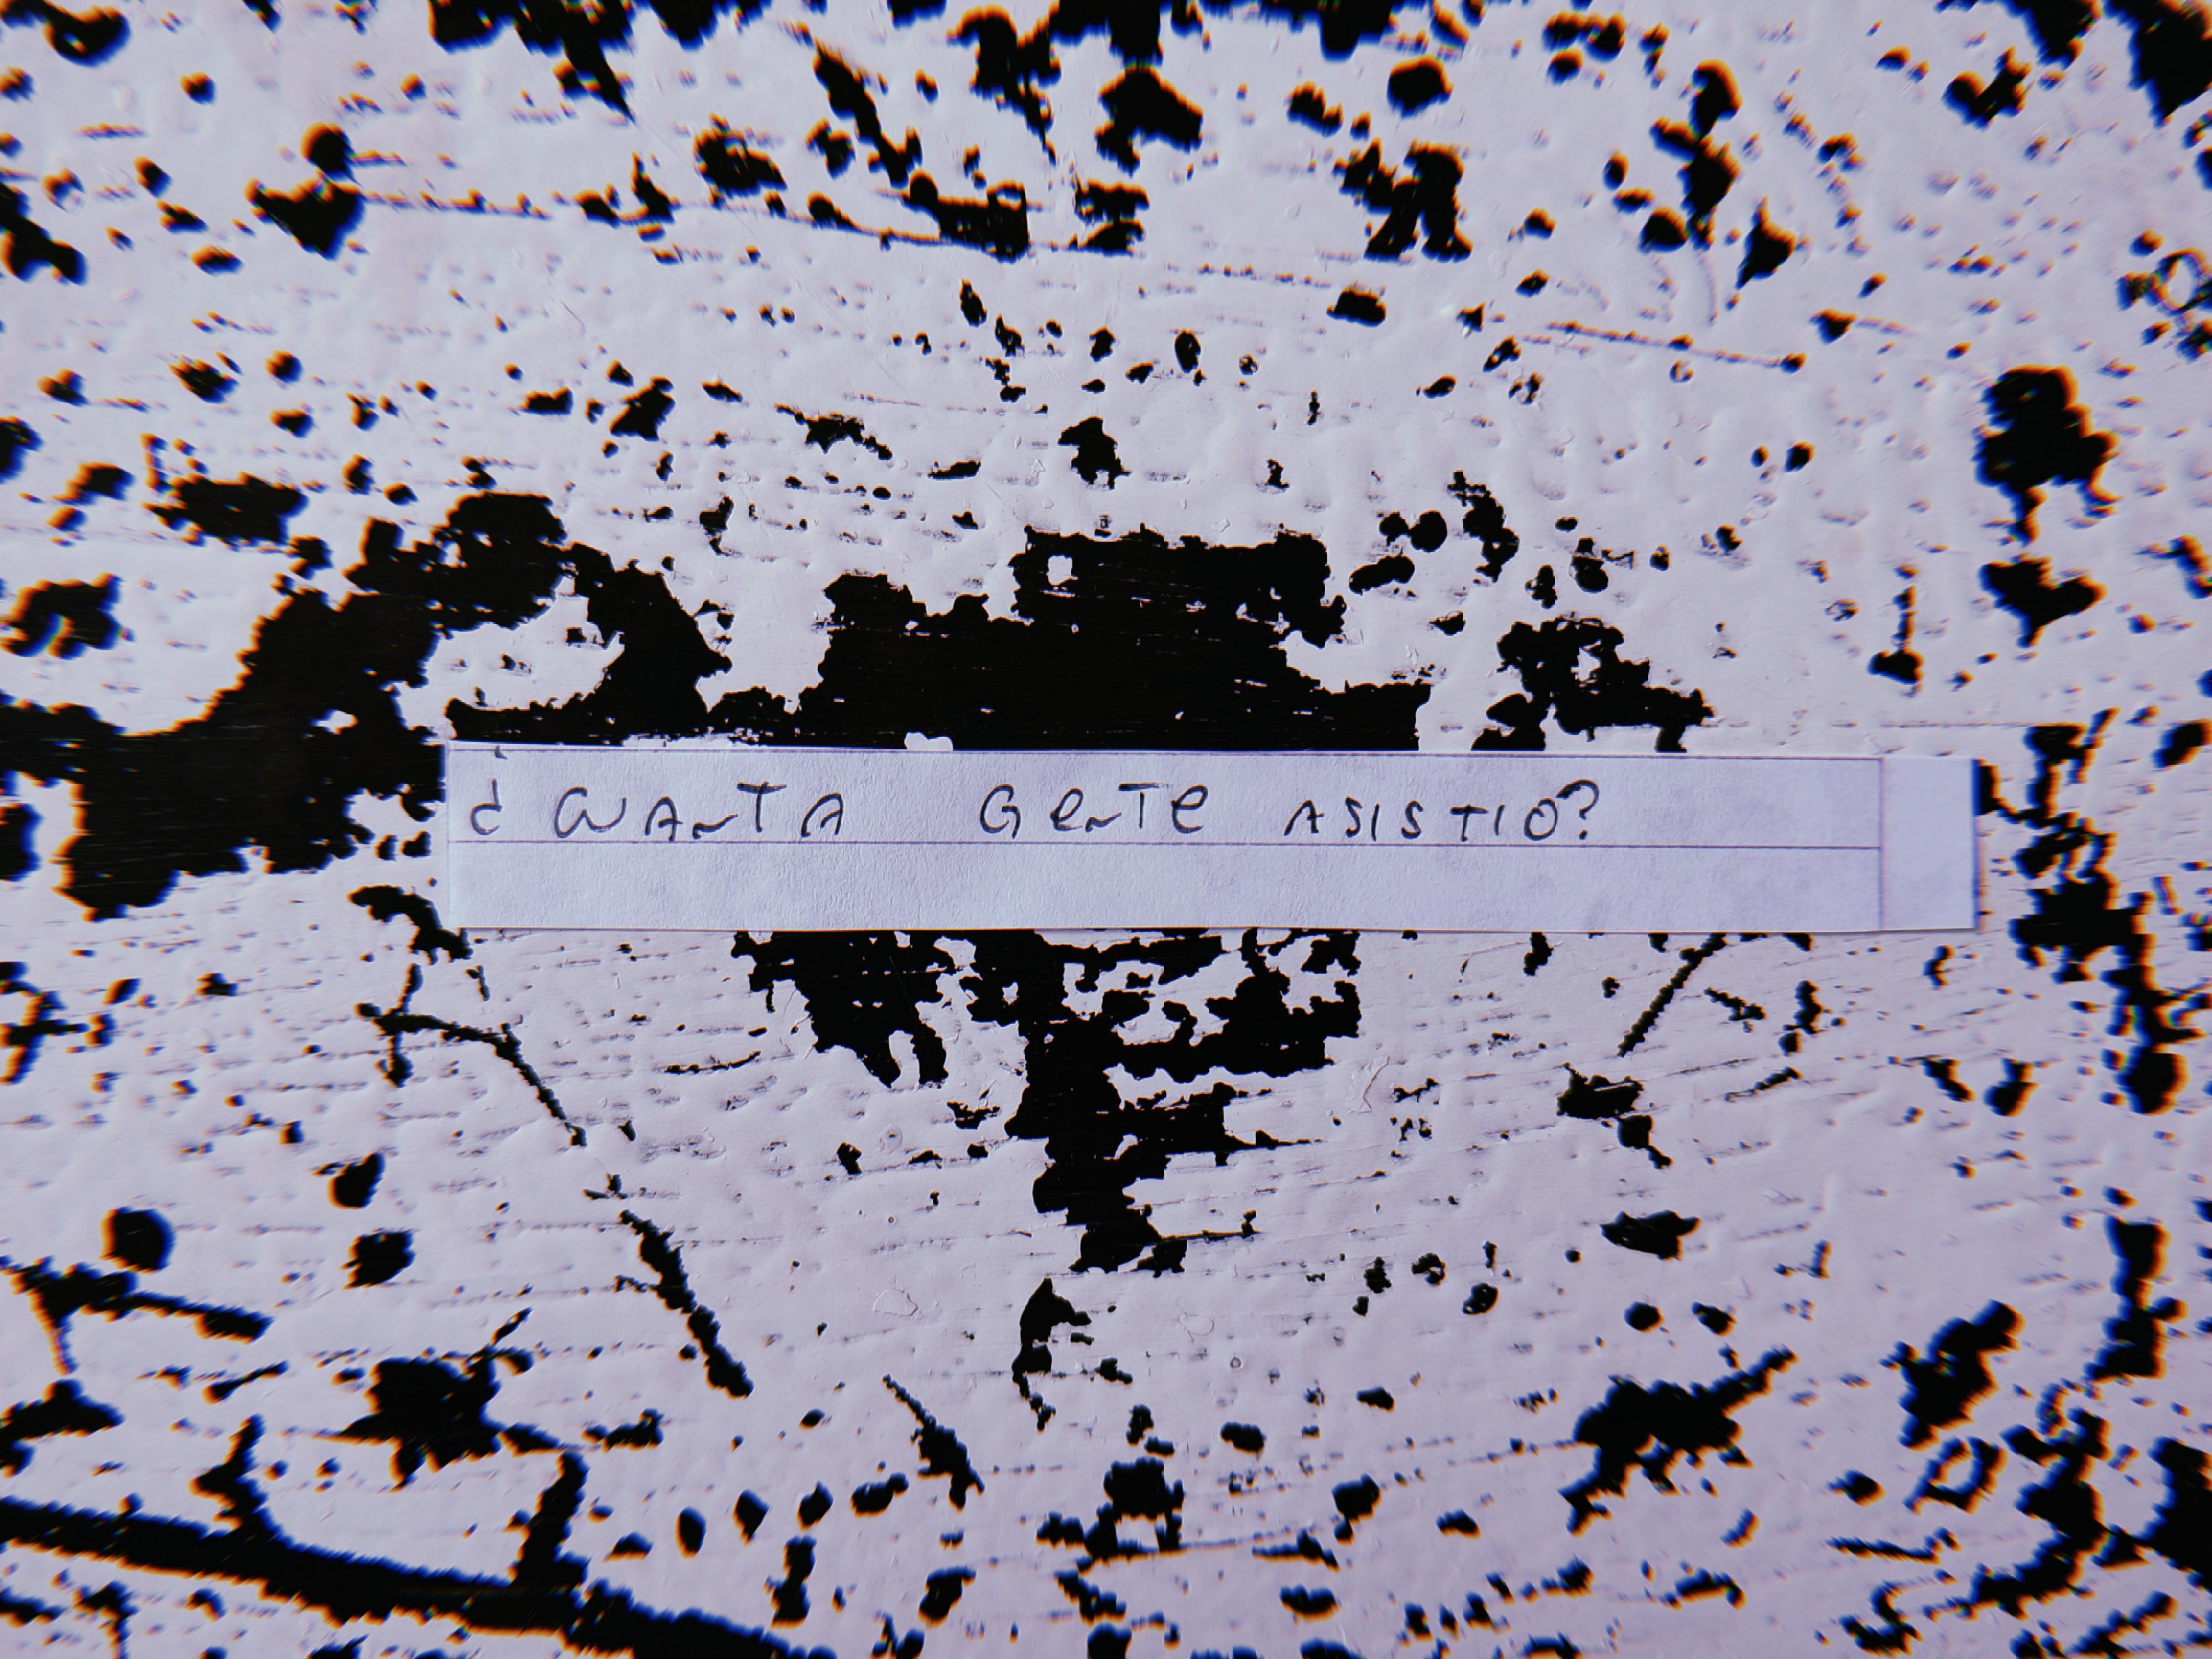 ¿CUANTA GeNTe ASISTIÓ?